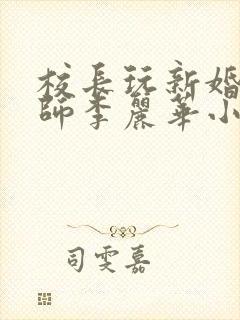 校長玩新婚
師李麗華小
司雯嘉